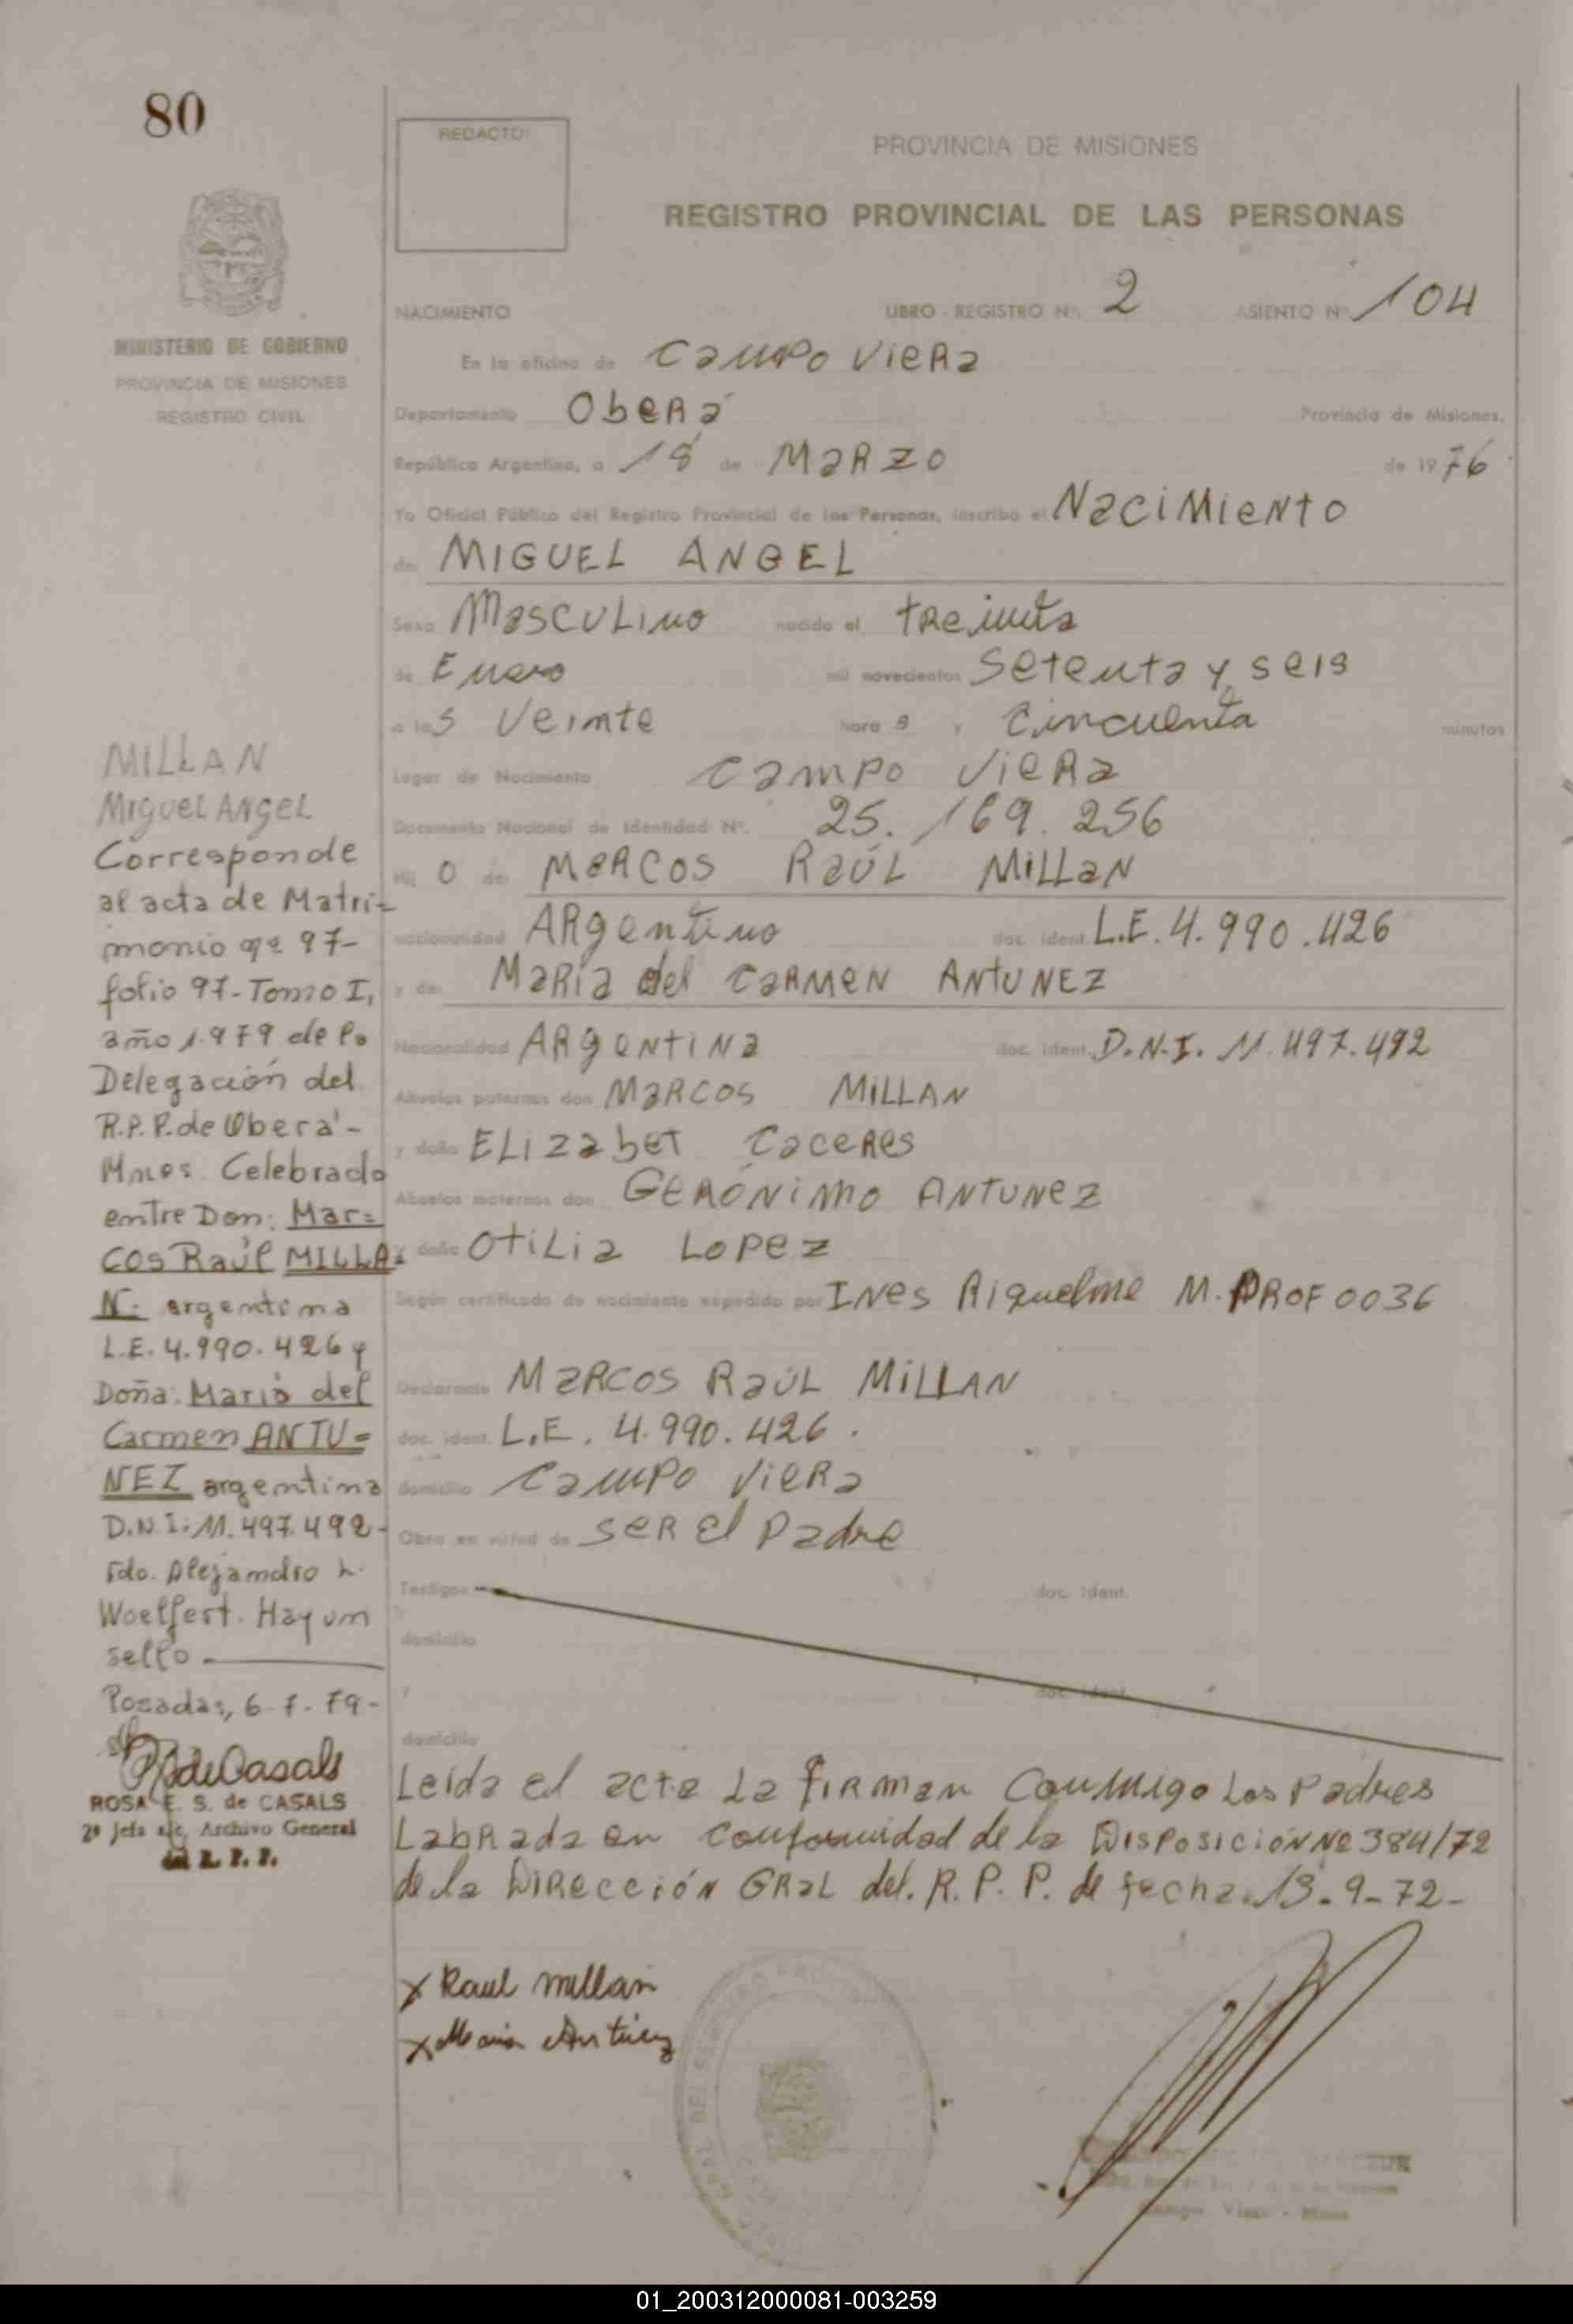 80
REDACTO:
PROVINCIA DE MISIONES
REGISTRO PROVINCIAL DE LAS PERSONAS
MINISTERIO DE GOBIERNO
PROVINCIA DE MISIONES
REGISTRO CIVIL
NACIMIENTO LIBRO - REGISTRO Nº. 2 ASIENTO Nº. 104
En la oficina de Campo Viera
Departamento Oberá Provincia de Misiones,
República Argentina, a 18 de Marzo de 1976
Yo Oficial Público del Registro Provincial de las Personas, inscribo el Nacimiento
de MIGUEL ANGEL
Sexo Masculino nacido el treinta
de Enero mil novecientos Setenta y seis
a las Veinte horas y Cincuenta minutos
Lugar de Nacimiento Campo Viera
Documento Nacional de Identidad Nº. 25.169.256
Hijo de: Marcos Raúl Millan
nacionalidad Argentino doc. ident. L.E. 4.990.426
y de: María del Carmen Antunez
Nacionalidad Argentina doc. ident. D.N.I. 11.497.492
Abuelos paternos don Marcos Millan
y doña Elizabet Caceres
Abuelos maternos don Gerónimo Antunez
y doña Otilia Lopez
Según certificado de nacimiento expedido por Ines Riquelme M. PROF 0036
Declarante Marcos Raúl Millan
doc. ident. L.E. 4.990.426.
domicilio Campo Viera
Obra en virtud de ser el Padre
Testigos doc. ident.
domicilio
y doc. ident.
domicilio
Leída el acta la firman conmigo los Padres
Labrada en conformidad de la Disposición Nº 384/72
de la Dirección Gral del. R.P.P. de fecha 13-9-72-
x Raul millan
x Maria Antunez
MILLAN
Miguel Angel
Corresponde
al acta de Matri=
monio nº 97-
folio 97-Tomo I,
año 1.979 de la
Delegación del
R.P.P. de Oberá-
Mnes. Celebrado
entre Don: Mar=
cos Raúl MILLA=
N- argentina
L.E. 4.990.426 y
Doña: María del
Carmen ANTU=
NEZ argentina
D.N.I: 11.497.492-
Fdo. Alejandro L.
Woelfert. Hay un
sello.
Posadas, 6-7-79-
R de Casals
ROSA E. S. de CASALS
2º Jefa a/c. Archivo General
del R. P. P.
01_200312000081-003259